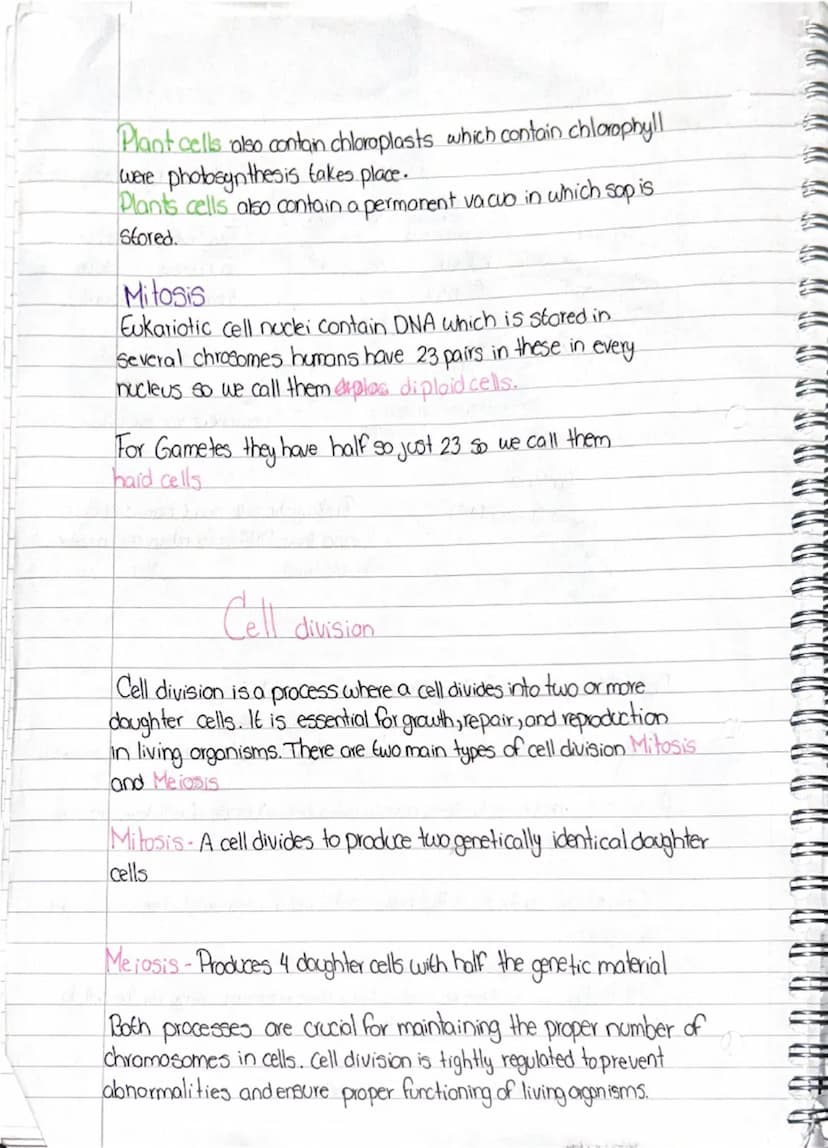 Plant cells also contain chloroplasts which contain chlorophyll
were photosynthesis takes place.
Plants cells also contain a permanent vacuo in which sap is
stored.
Mitosis
Eukariotic cell nuclei contain DNA which is stored in
several chrosomes humans have 23 pairs in these in every
nucleus so we call them diploid cells.
For Gametes they have half so just 23 so we call them
haid cells
Cell division
Cell division is a process where a cell divides into two or more
daughter cells. It is essential for growth, repair, and reproduction
in living organisms. There are two main types of cell division Mitosis
and Meiosis
Mitosis - A cell divides to produce two genetically identical daughter
cells
Meiosis - Produces 4 daughter cells with half the genetic material
Both processes are crucial for maintaining the proper number of
chromosomes in cells. Cell division is tightly regulated to prevent
abnormalities and ensure proper functioning of living organisms.